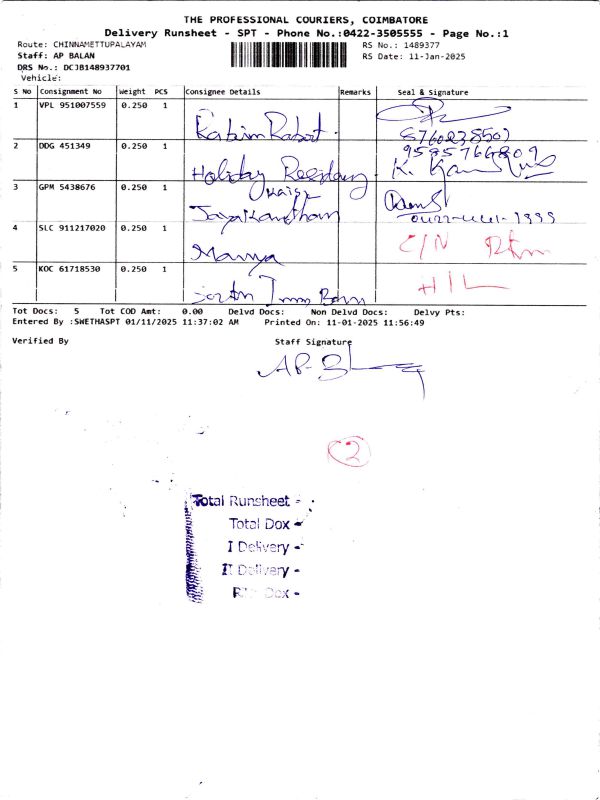 THE PROFESSIONAL COURIERS, COIMBATORE
Delivery Runsheet - SPT - Phone No.:0422-3505555 - Page No.:1
Route: CHINNAMETTUPALAYAM
RS No.: 1489377
Staff: AP BALAN
RS Date: 11-Jan-2025
DRS No.: DCJB148937701
Vehicle:
S No Consignment No Weight PCS Consignee Details Remarks Seal & Signature
1 VPL 951007559 0.250 1
8760238507
2 DDG 451349 0.250 1 Holiday Residency
9585766809
3 GPM 5438676 0.250 1
Jayakantham
4 SLC 911217020 0.250 1 C/N Rtn
5 KOC 61718530 0.250 1
Tot Docs: 5 Tot COD Amt: 0.00 Delvd Docs: Non Delvd Docs: Delvy Pts:
Entered By :SWETHASPT 01/11/2025 11:37:02 AM Printed On: 11-01-2025 11:56:49
Verified By Staff Signature
2
Total Runsheet -
Total Dox -
I Delivery -
II Delivery -
Dox -